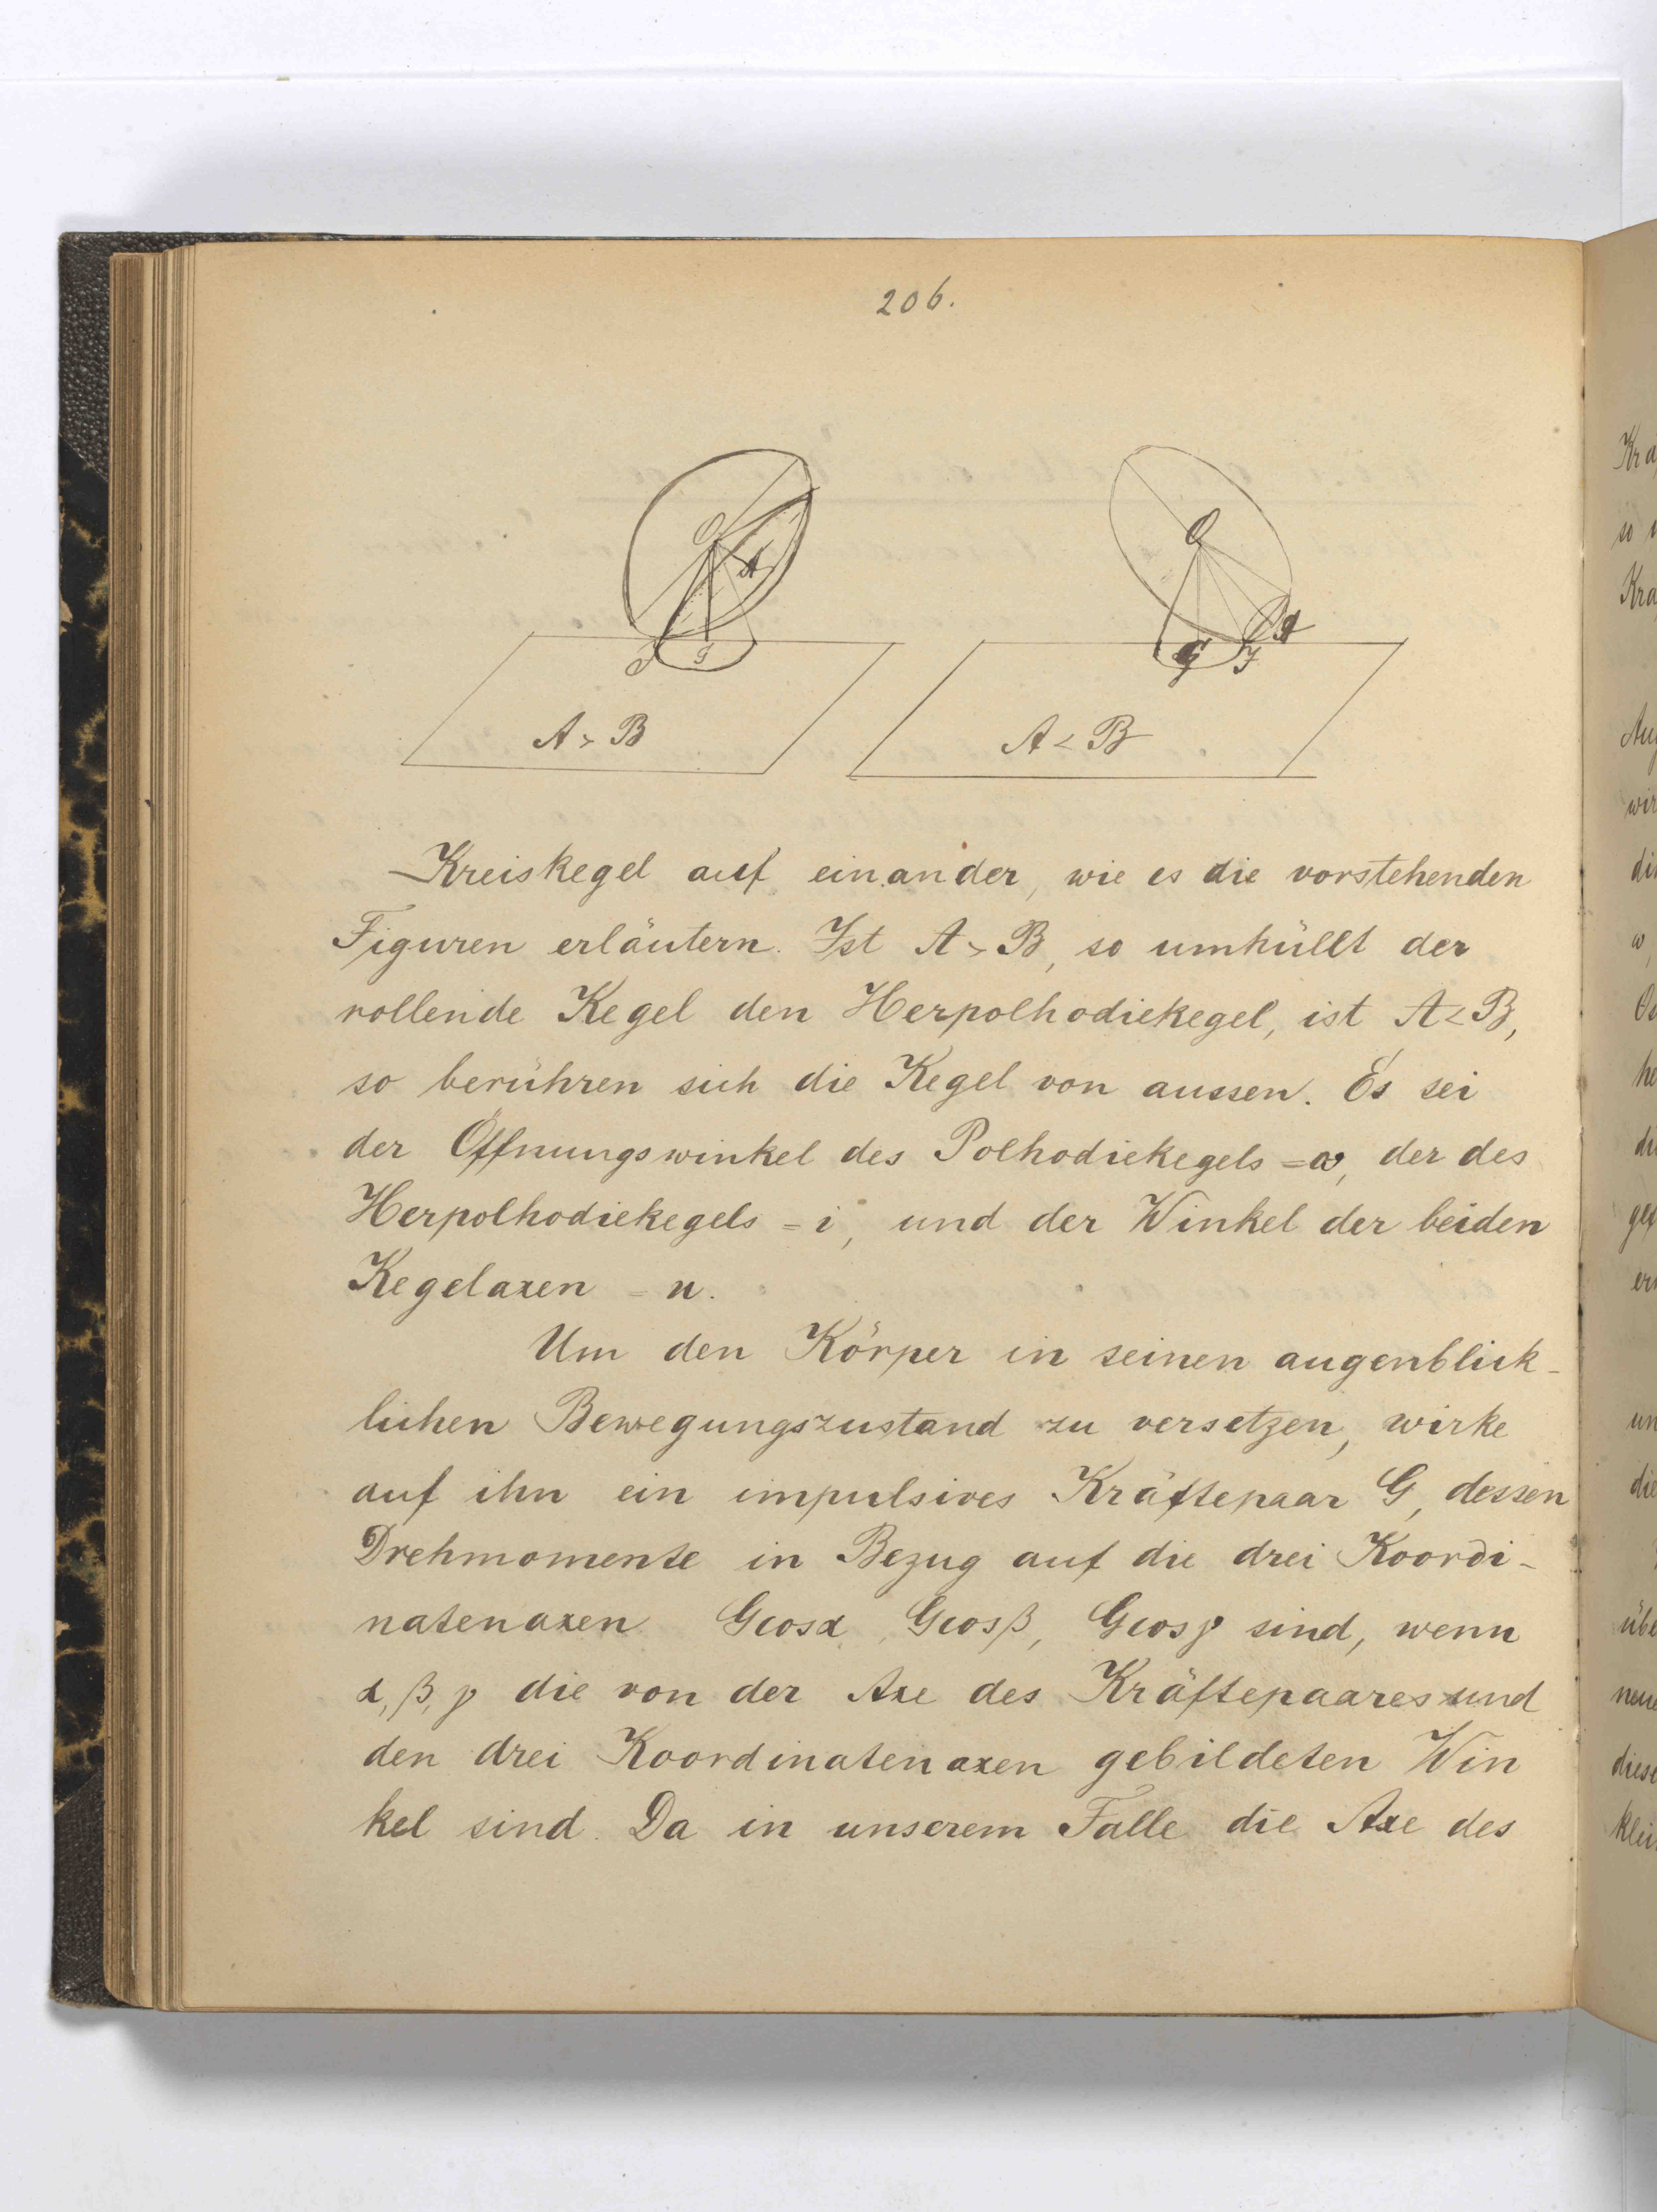 206.
O
A
J
G
A > B
O
A
G
J
A < B
Kreiskegel auf einander, wie es die vorstehenden
Figuren erläutern. Ist A > B, so umhüllt der
rollende Kegel den Herpolhodiekegel, ist A < B,
so berühren sich die Kegel von aussen. Es sei
der Öffnungswinkel des Polhodiekegels = α, der des
Herpolhodiekegels = i, und der Winkel der beiden
Kegelaxen = u.
Um den Körper in seinen augenblick-
lichen Bewegungszustand zu versetzen, wirke
auf ihn ein impulsives Kräftepaar G, dessen
Drehmomente in Bezug auf die drei Koordi-
natenaxen Gcosα, Gcosβ, Gcosγ sind, wenn
α, β, γ die von der Axe des Kräftepaares und
den drei Koordinatenaxen gebildeten Win
kel sind. Da in unserem Falle die Axe des